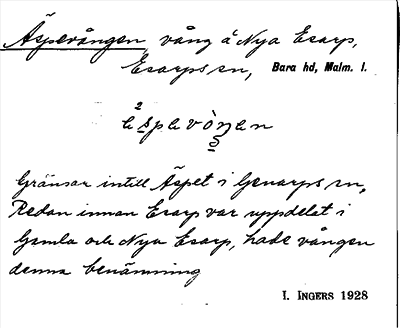 Äspevången, vång å Nya Esarp,
Esarps sn, Bara hd, Malm. l.
Gränsar intill Äspet i Genarps sn,
Redan innan Esarp var uppdelat i
Gamla och Nya Esarp, hade vången
denna benämning
I. INGERS 1928